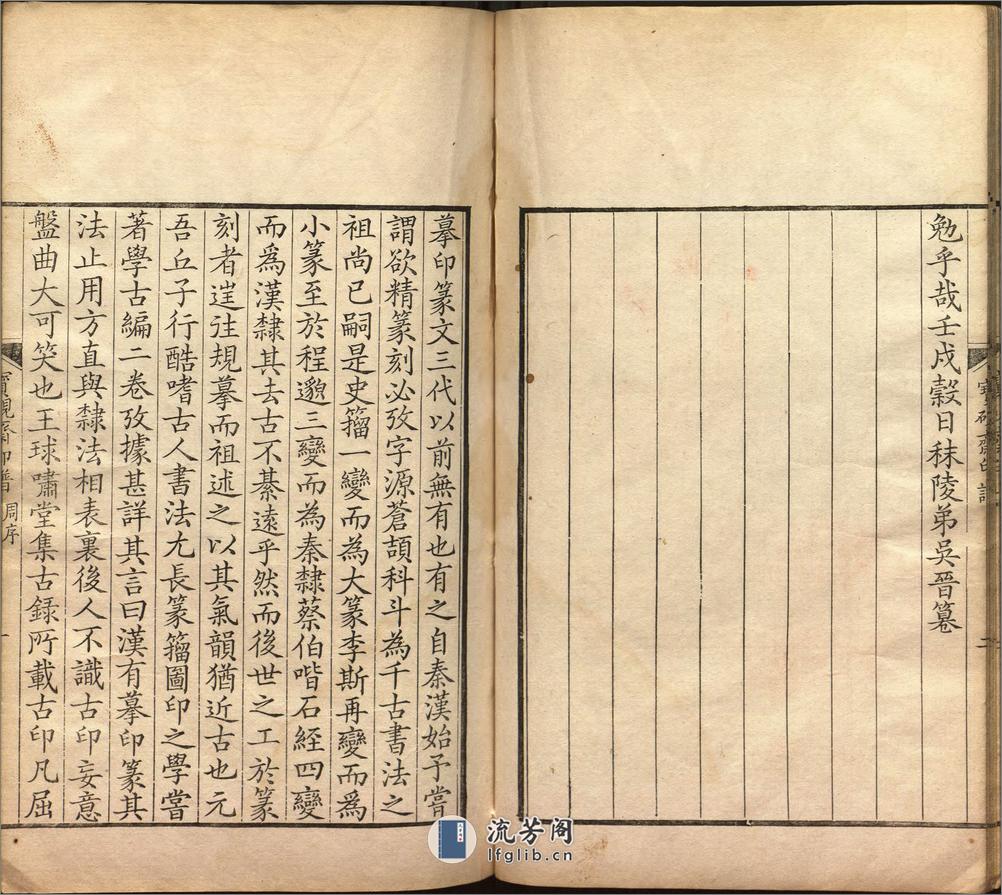 勉乎哉壬戌穀日秣陵弟吳晉纂
二
摹印篆文三代以前無有也有之自秦漢始予嘗
謂欲精篆刻必攷字源蒼頡科斗為千古書法之
祖尚已嗣是史籀一變而為大篆李斯再變而為
小篆至於程邈三變而為秦隸蔡伯喈石經四變
而為漢隸其去古不綦遠乎然而後世之工於篆
刻者逞往規摹而祖述之以其氣韻猶近古也元
吾丘子行酷嗜古人書法尤長篆籀圖印之學嘗
著學古編二卷攷據甚詳其言曰漢有摹印篆其
法止用方直與隸法相表裏後人不識古印妄意
盤曲大可笑也王球嘯堂集古録所載古印凡屈
印譜 周序
一
流芳阁
lfglib.cn